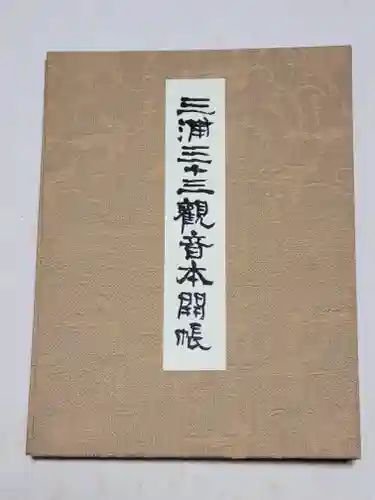 三浦三十三觀音本開帳